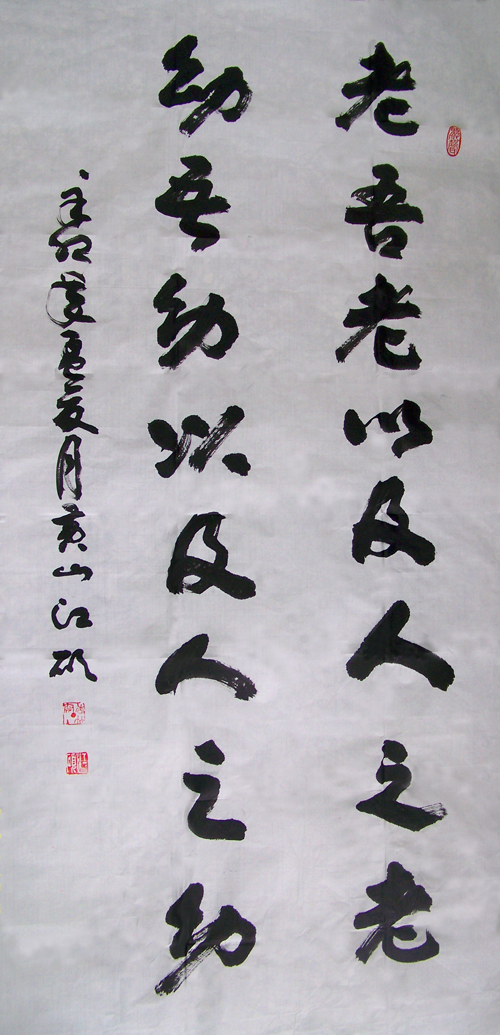 老吾老以及人之老
幼吾幼以及人之幼
辛卯夏月黄山江硕